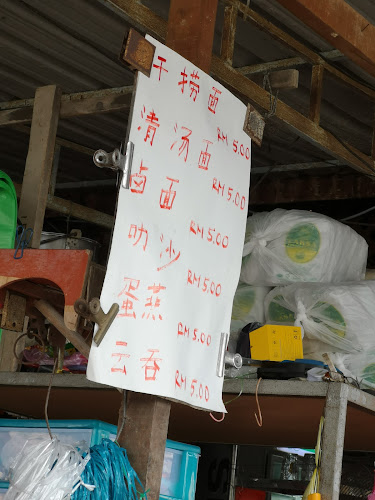 干捞面 RM 5.00
清汤面 RM 5.00
卤面 RM 5.00
叻沙 RM 5.00
蛋燕 RM 5.00
云吞 RM 5.00